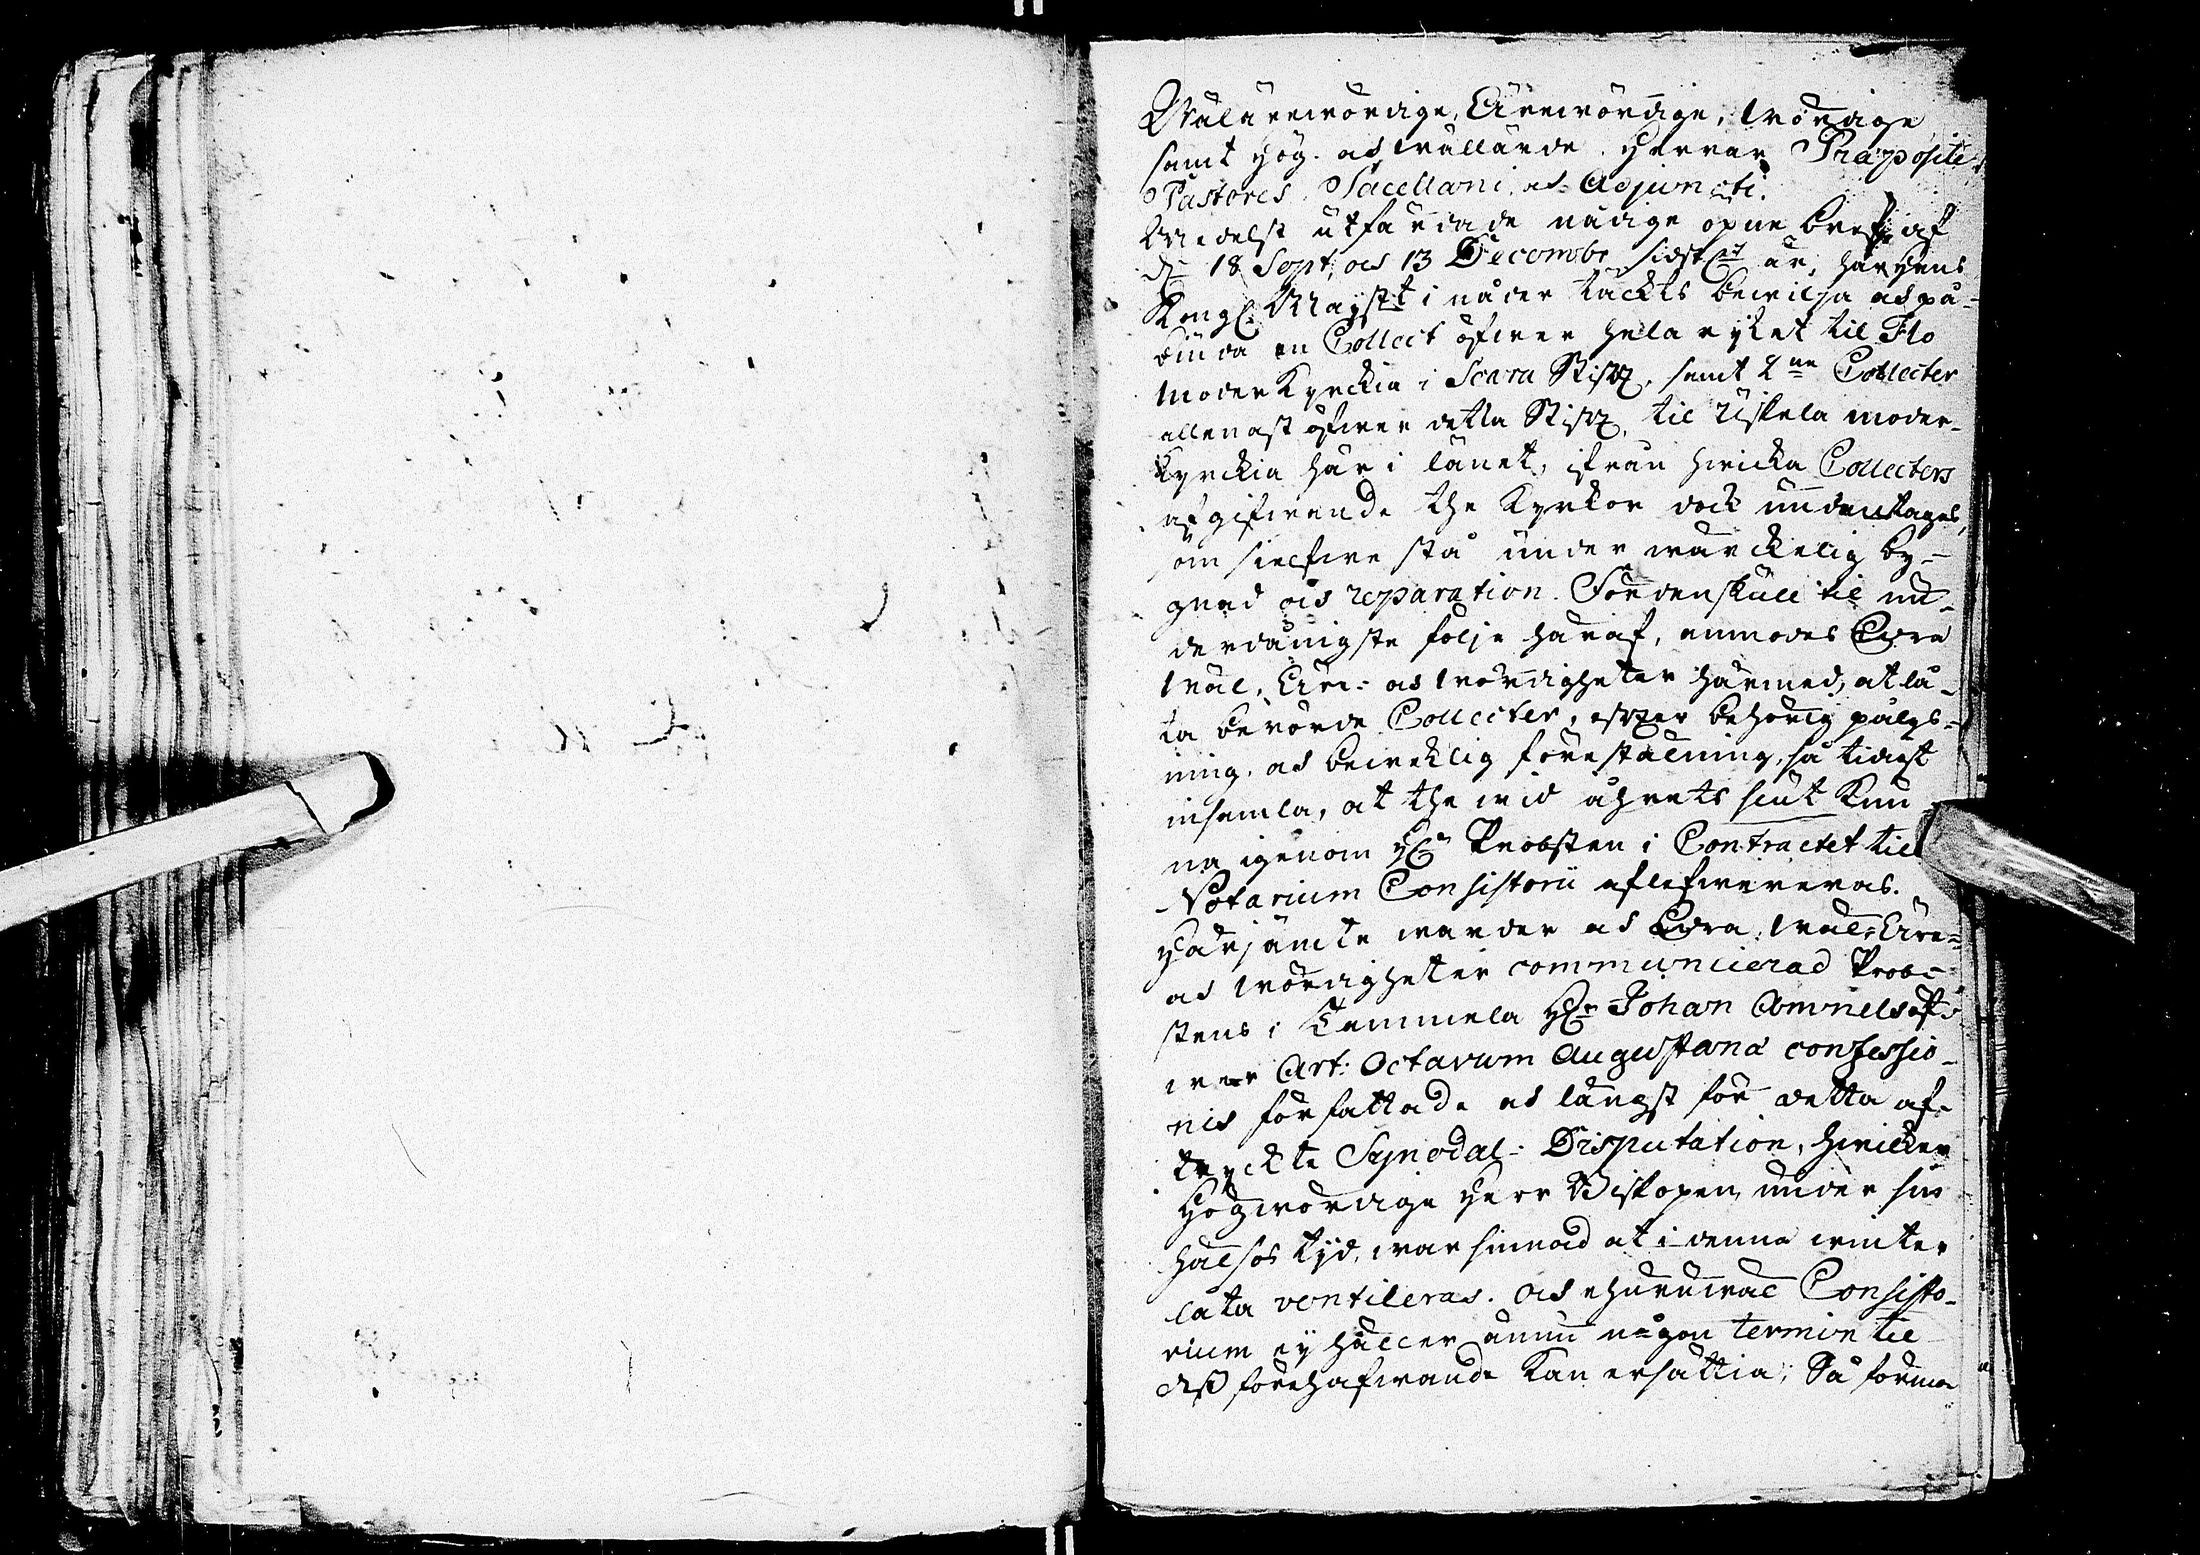 Wälärewördige, Ärewördige, Wördige
samt Hög- och Wällärde Herrar Præpositi,
Pastores, Sacellani, och Adjuncti.
Medelst utfärdade nådige öpne bref af
d. 18 Sept, och 13 Decembr sidstl:ne år, har Hans
Kongl. Mayst:t i nåder täckts bewilja och på-
biuda en Collect öfwer hela ryket til Flo
moderkyrckia i Scara Stift, samt 2:ne Collecter
allenast öfwer detta Stift, til Uskela moder-
kyrckia här i länet, ifrån hwicka Collecters
afgifwende the kyrkor dock undantages,
som sielfwe stå under wärckelig by-
gnad och reparation. Fördenskull til un-
derdånigste följe häraf, anmodes Edra
Wäl, Äre- och Wördigheter härmed, at lå-
ta berörde Collecter, efter behörig pålys-
ning, och beweklig föreställning, så tidigt
insamla, at the wid åhrets slut kun-
na igenom H:r Probsten i Contractet til
Notarium Consistorii aflefwereras.
Härjämte warder och Edra, Wäl- Äre-
och Wördigheter communicerad Prob-
stens i Tammela H:r Johan Amnels öf-
wer Art: Octavum Augustanæ confessio-
nis författade och längst för detta af-
tryckte Synodal-Disputation, hwilken
Högwördige Herr Biskopen under sin
hälsos tijd, war sinnad at i denna winter
låta ventileras. Och ehuruwäl Consisto-
rium ej håller ännu någon termin til
dess förehafwande kan ersättia; Så förmo